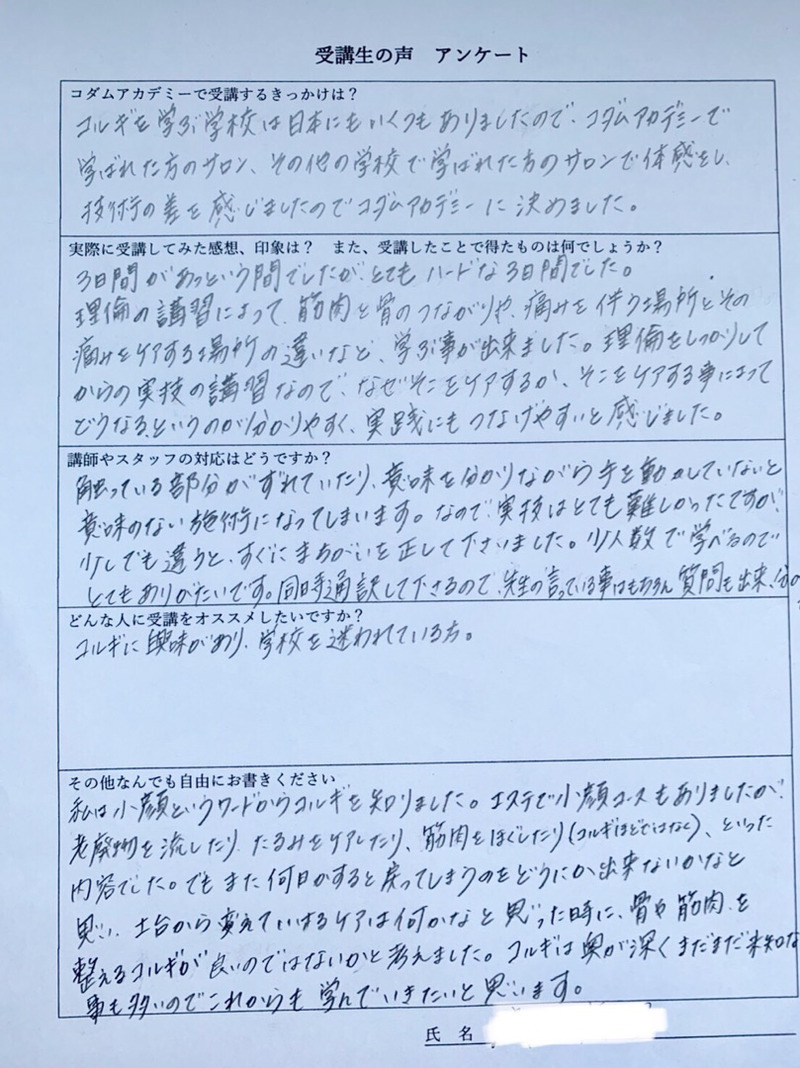 受講生の声　アンケート
コダムアカデミーで受講するきっかけは？
コルギを学ぶ学校は日本にもいくつもありましたので、コダムアカデミーで
学ばれた方のサロン、その他の学校で学ばれた方のサロンで体感をし、
技術の差を感じましたのでコダムアカデミーに決めました。
実際に受講してみた感想、印象は？　また、受講したことで得たものは何でしょうか？
3日間があっという間でしたが、とてもハードな3日間でした。
理倫の講習によって、筋肉と骨のつながりや、痛みを伴う場所とその
痛みをケアする場所の違いなど、学ぶ事が出来ました。理倫をしっかりして
からの実技の講習なので、なぜそこをケアするか、そこをケアする事によって
どうなる、というのが分かりやすく、実践にもつなげやすいと感じました。
講師やスタッフの対応はどうですか？
触っている部分がずれていたり、意味を分かりながら手を動かしていないと
意味のない施術になってしまいます。なので、実技はとても難しかったですが、
少しでも違うと、すぐにまちがいを正して下さいました。少人数で学べるので
とてもありがたいです。同時通訳して下さるので、先生の言っている事はもちろん質問も出来、分か
どんな人に受講をオススメしたいですか？
コルギに興味があり、学校を迷われている方。
その他なんでも自由にお書きください
私は小顔というワードからコルギを知りました。エステで小顔コースもありましたが、
老廃物を流したり、たるみをケアしたり、筋肉をほぐしたり(コルギほどではなく)、といった
内容でした。でもまた何日かすると戻ってしまうのをどうにか出来ないかなと
思い、土台から変えていけるケアは何かなと思った時に、骨や筋肉を
整えるコルギが良いのではないかと考えました。コルギは奥が深くまだまだ未知な
事も多いのでこれからも学んでいきたいと思います。
氏 名